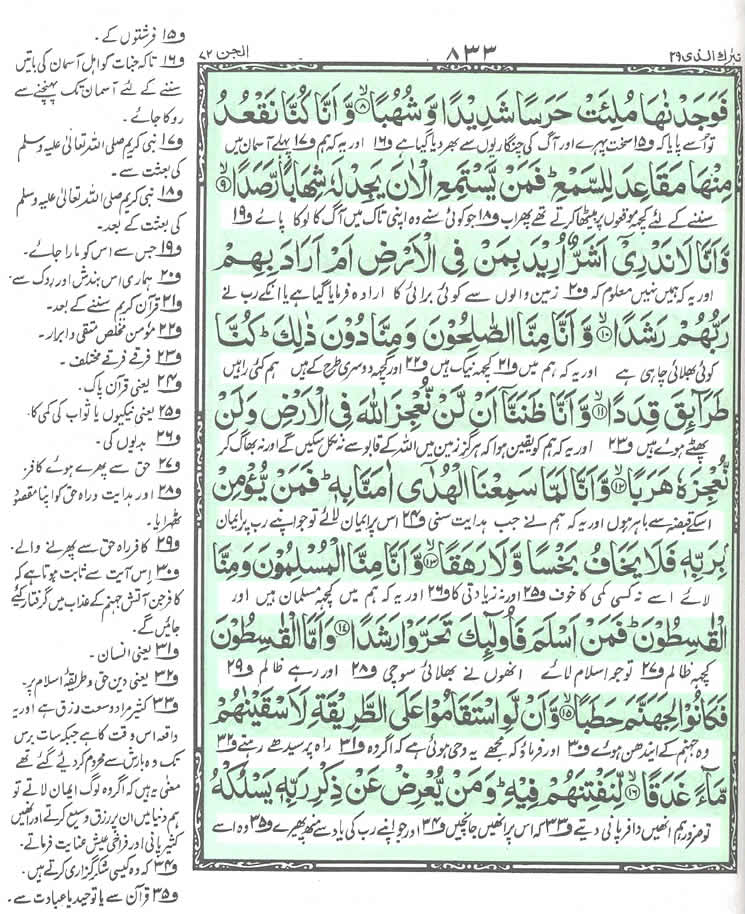 تبٰرك الذی ۲۹
۸۳۳
الجن ۷۲
فَوَجَدْنٰهَا مُلِئَتْ حَرَسًا شَدِيْدًا وَّ شُهُبًا ۙ﴿۸﴾ وَّ اَنَّا كُنَّا نَقْعُدُ
تو اسے پایا کہ و۱۵ سخت پہرے اور آگ کی چنگاریوں سے بھر دیا گیا ہے و۱۶ اور یہ کہ ہم و۱۷ پہلے آسمان میں
مِنْهَا مَقَاعِدَ لِلسَّمْعِ ؕ فَمَنْ يَّسْتَمِعِ الْاٰنَ يَجِدْ لَهٗ شِهَابًا رَّصَدًا ۙ﴿۹﴾
سننے کے لئے کچھ موقعوں پر بیٹھا کرتے تھے پھر اب و۱۸ جو کوئی سنے وہ اپنی تاک میں آگ کا لوکا پائے و۱۹
وَّ اَنَّا لَا نَدْرِیْۤ اَشَرٌّ اُرِيْدَ بِمَنْ فِی الْاَرْضِ اَمْ اَرَادَ بِهِمْ
اور یہ کہ ہمیں نہیں معلوم کہ و۲۰ زمین والوں سے کوئی برائی کا ارادہ فرمایا گیا ہے یا انکے رب نے
رَبُّهُمْ رَشَدًا ۙ﴿۱۰﴾ وَّ اَنَّا مِنَّا الصّٰلِحُوْنَ وَ مِنَّا دُوْنَ ذٰلِكَ ؕ كُنَّا
کوئی بھلائی چاہی ہے اور یہ کہ ہم میں و۲۱ کچھ نیک ہیں و۲۲ اور کچھ دوسری طرح کے ہیں ہم کئی راہیں
طَرَآئِقَ قِدَدًا ۙ﴿۱۱﴾ وَّ اَنَّا ظَنَنَّاۤ اَنْ لَّنْ نُّعْجِزَ اللّٰهَ فِی الْاَرْضِ وَ لَنْ
پھٹے ہوئے ہیں و۲۳ اور یہ کہ ہم کو یقین ہوا کہ ہرگز زمین میں اللہ کے قابو سے نہ نکل سکیں گے اور نہ بھاگ کر
نُّعْجِزَهٗ هَرَبًا ۙ﴿۱۲﴾ وَّ اَنَّا لَمَّا سَمِعْنَا الْهُدٰۤی اٰمَنَّا بِهٖ ؕ فَمَنْ يُّؤْمِنْۢ
اسکے قبضہ سے باہر ہوں اور یہ کہ ہم نے جب ہدایت سنی و۲۴ اس پر ایمان لائے تو جو اپنے رب پر ایمان
بِرَبِّهٖ فَلَا يَخَافُ بَخْسًا وَّ لَا رَهَقًا ۙ﴿۱۳﴾ وَّ اَنَّا مِنَّا الْمُسْلِمُوْنَ وَ مِنَّا
لائے اسے نہ کسی کمی کا خوف و۲۵ اور نہ زیادتی کا و۲۶ اور یہ کہ ہم میں کچھ مسلمان ہیں اور
الْقٰسِطُوْنَ ؕ فَمَنْ اَسْلَمَ فَاُولٰٓئِكَ تَحَرَّوْا رَشَدًا ﴿۱۴﴾ وَ اَمَّا الْقٰسِطُوْنَ
کچھ ظالم و۲۷ تو جو اسلام لائے انھوں نے بھلائی سوچی و۲۸ اور رہے ظالم و۲۹
فَكَانُوْا لِجَهَنَّمَ حَطَبًا ۙ﴿۱۵﴾ وَّ اَنْ لَّوِ اسْتَقَامُوْا عَلَی الطَّرِيْقَةِ لَاَسْقَيْنٰهُمْ
وہ جہنم کے ایندھن ہوئے و۳۰ اور فرماؤ کہ مجھے یہ وحی ہوئی ہے کہ اگر وہ و۳۱ راہ پر سیدھے رہتے و۳۲
مَّآءً غَدَقًا ۙ﴿۱۶﴾ لِّنَفْتِنَهُمْ فِيْهِ ؕ وَ مَنْ يُّعْرِضْ عَنْ ذِكْرِ رَبِّهٖ يَسْلُكْهُ
تو ضرور ہم انھیں وافر پانی دیتے و۳۳ کہ اس پر انھیں جانچیں و۳۴ اور جو اپنے رب کی یاد سے منھ پھیرے و۳۵ وہ اسے
و۱۵ فرشتوں کے۔
و۱۶ تاکہ جنات کو اہل آسمان کی باتیں
سننے کے لئے آسمان تک پہنچنے سے
روکا جائے۔
و۱۷ نبی کریم صلی اللہ تعالیٰ علیہ وسلم
کی بعثت سے۔
و۱۸ نبی کریم صلی اللہ تعالیٰ علیہ وسلم
کی بعثت کے بعد۔
و۱۹ جس سے اس کو مارا جائے۔
و۲۰ ہماری اس بندش اور روک سے۔
و۲۱ قرآن کریم سننے کے بعد۔
و۲۲ مؤمن مخلص متقی و ابرار۔
و۲۳ فرقے فرقے مختلف۔
و۲۴ یعنی قرآن پاک۔
و۲۵ یعنی نیکیوں یا ثواب کی کمی کا۔
و۲۶ بدیوں کی۔
و۲۷ حق سے پھرے ہوئے کافر
و۲۸ اور ہدایت و راہ حق کو اپنا مقصود
ٹھہرایا۔
و۲۹ کافر راہ حق سے پھرنے والے۔
و۳۰ اس آیت سے ثابت ہوتا ہے کہ
کافر جن آتش جہنم کے عذاب میں گرفتار کئے
جائیں گے۔
و۳۱ یعنی انسان۔
و۳۲ یعنی دین حق و طریقۂ اسلام پر۔
و۳۳ کثیر مراد وسعت رزق ہے اور یہ
واقعہ اس وقت کا ہے جبکہ سات برس
تک وہ بارش سے محروم کر دیئے گئے تھے
معنی یہ ہیں کہ اگر وہ لوگ ایمان لاتے تو
ہم دنیا میں ان پر رزق وسیع کرتے اور انھیں
کثیر پانی اور فراخی عیش عنایت فرماتے۔
و۳۴ کہ وہ کیسی شکر گزاری کرتے ہیں۔
و۳۵ قرآن سے یا توحید یا عبادت سے۔